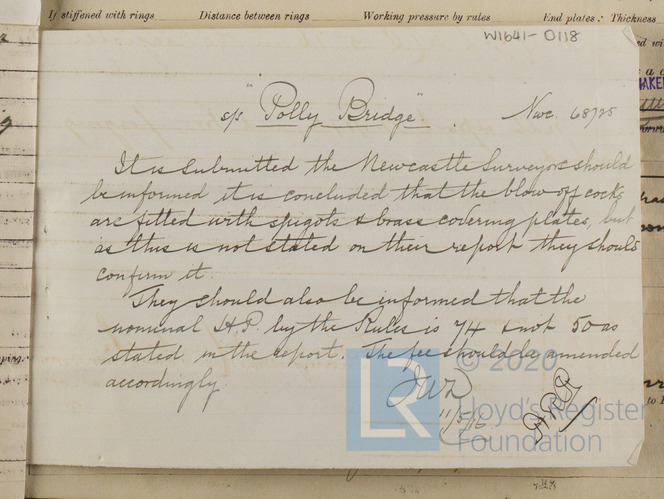 If stiffened with rings Distance between rings Working pressure by rules End plates: Thickness
W1641-0118
s/s "Polly Bridge" Nwc. 68725
It is submitted the Newcastle Surveyors should
be informed it is concluded that the blow off cocks
are fitted with spigots & brass covering plates, but
as this is not stated on their report they should
confirm it.
They should also be informed that the
nominal H.P. by the Rules is 74 & not 50 as
stated in the report. The fee should be amended
accordingly
11/5/16
LR
© 2020
Lloyd's Register
Foundation
ping.